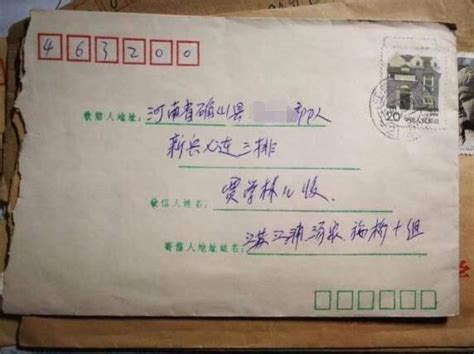 463200
收信人地址: 河南省确山县 部队
新兵九连三排
收信人姓名: 贾学林儿收.
寄信人地址姓名: 江苏江浦汤泉 施桥十组
20
中国人民邮政